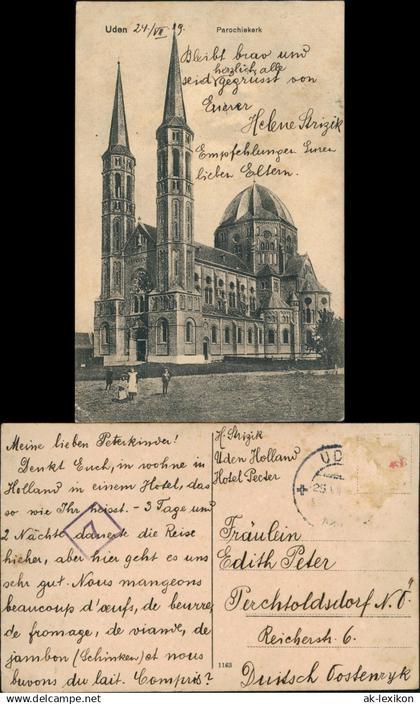 Uden 24/VII 19. Parochiekerk
Bleibt brav und
herzlich alle
seid gegrüsst von
Eurer
Helene Strizik
Empfehlungen Euren
lieben Eltern.
Meine lieben Peterkinder!
Denkt Euch, in wohne in
Holland in einem Hotel, das
so wie Ihr heisst. - 3 Tage und
2 Nächte dauerte die Reise
hieher, aber hier geht es uns
sehr gut. Nous mangeons
beaucoup d'œufs, de beurre,
de fromage, de viande, de
jambon (Schinken) et nous
buvons du lait. Compris?
H. Strizik
Uden Holland
Hotel Peeter
UD
Fräulein
Edith Peter
Perchtoldsdorf N.Ö
Reicherstr. 6.
1163
Duitsch Oostenryk
www.ak-lexikon.com